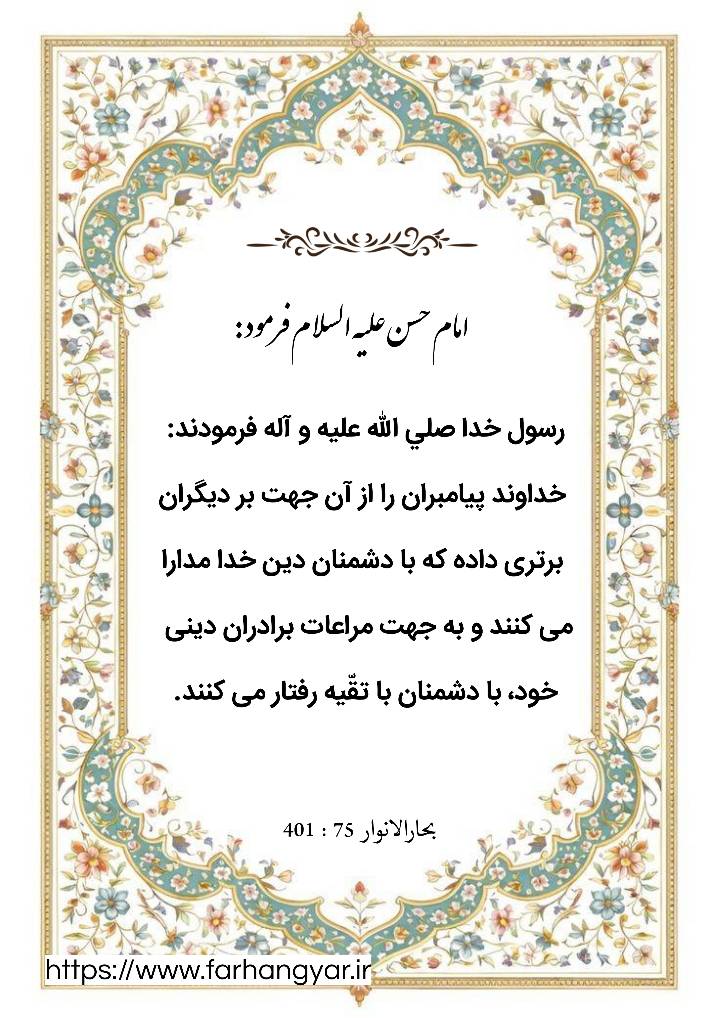 امام حسن علیه السلام فرمود:
رسول خدا صلي الله علیه و آله فرمودند:
خداوند پیامبران را از آن جهت بر دیگران
برتری داده که با دشمنان دین خدا مدارا
می کنند و به جهت مراعات برادران دینی
خود، با دشمنان با تقّیه رفتار می کنند.
بحارالانوار 75 : 401
https://www.farhangyar.ir